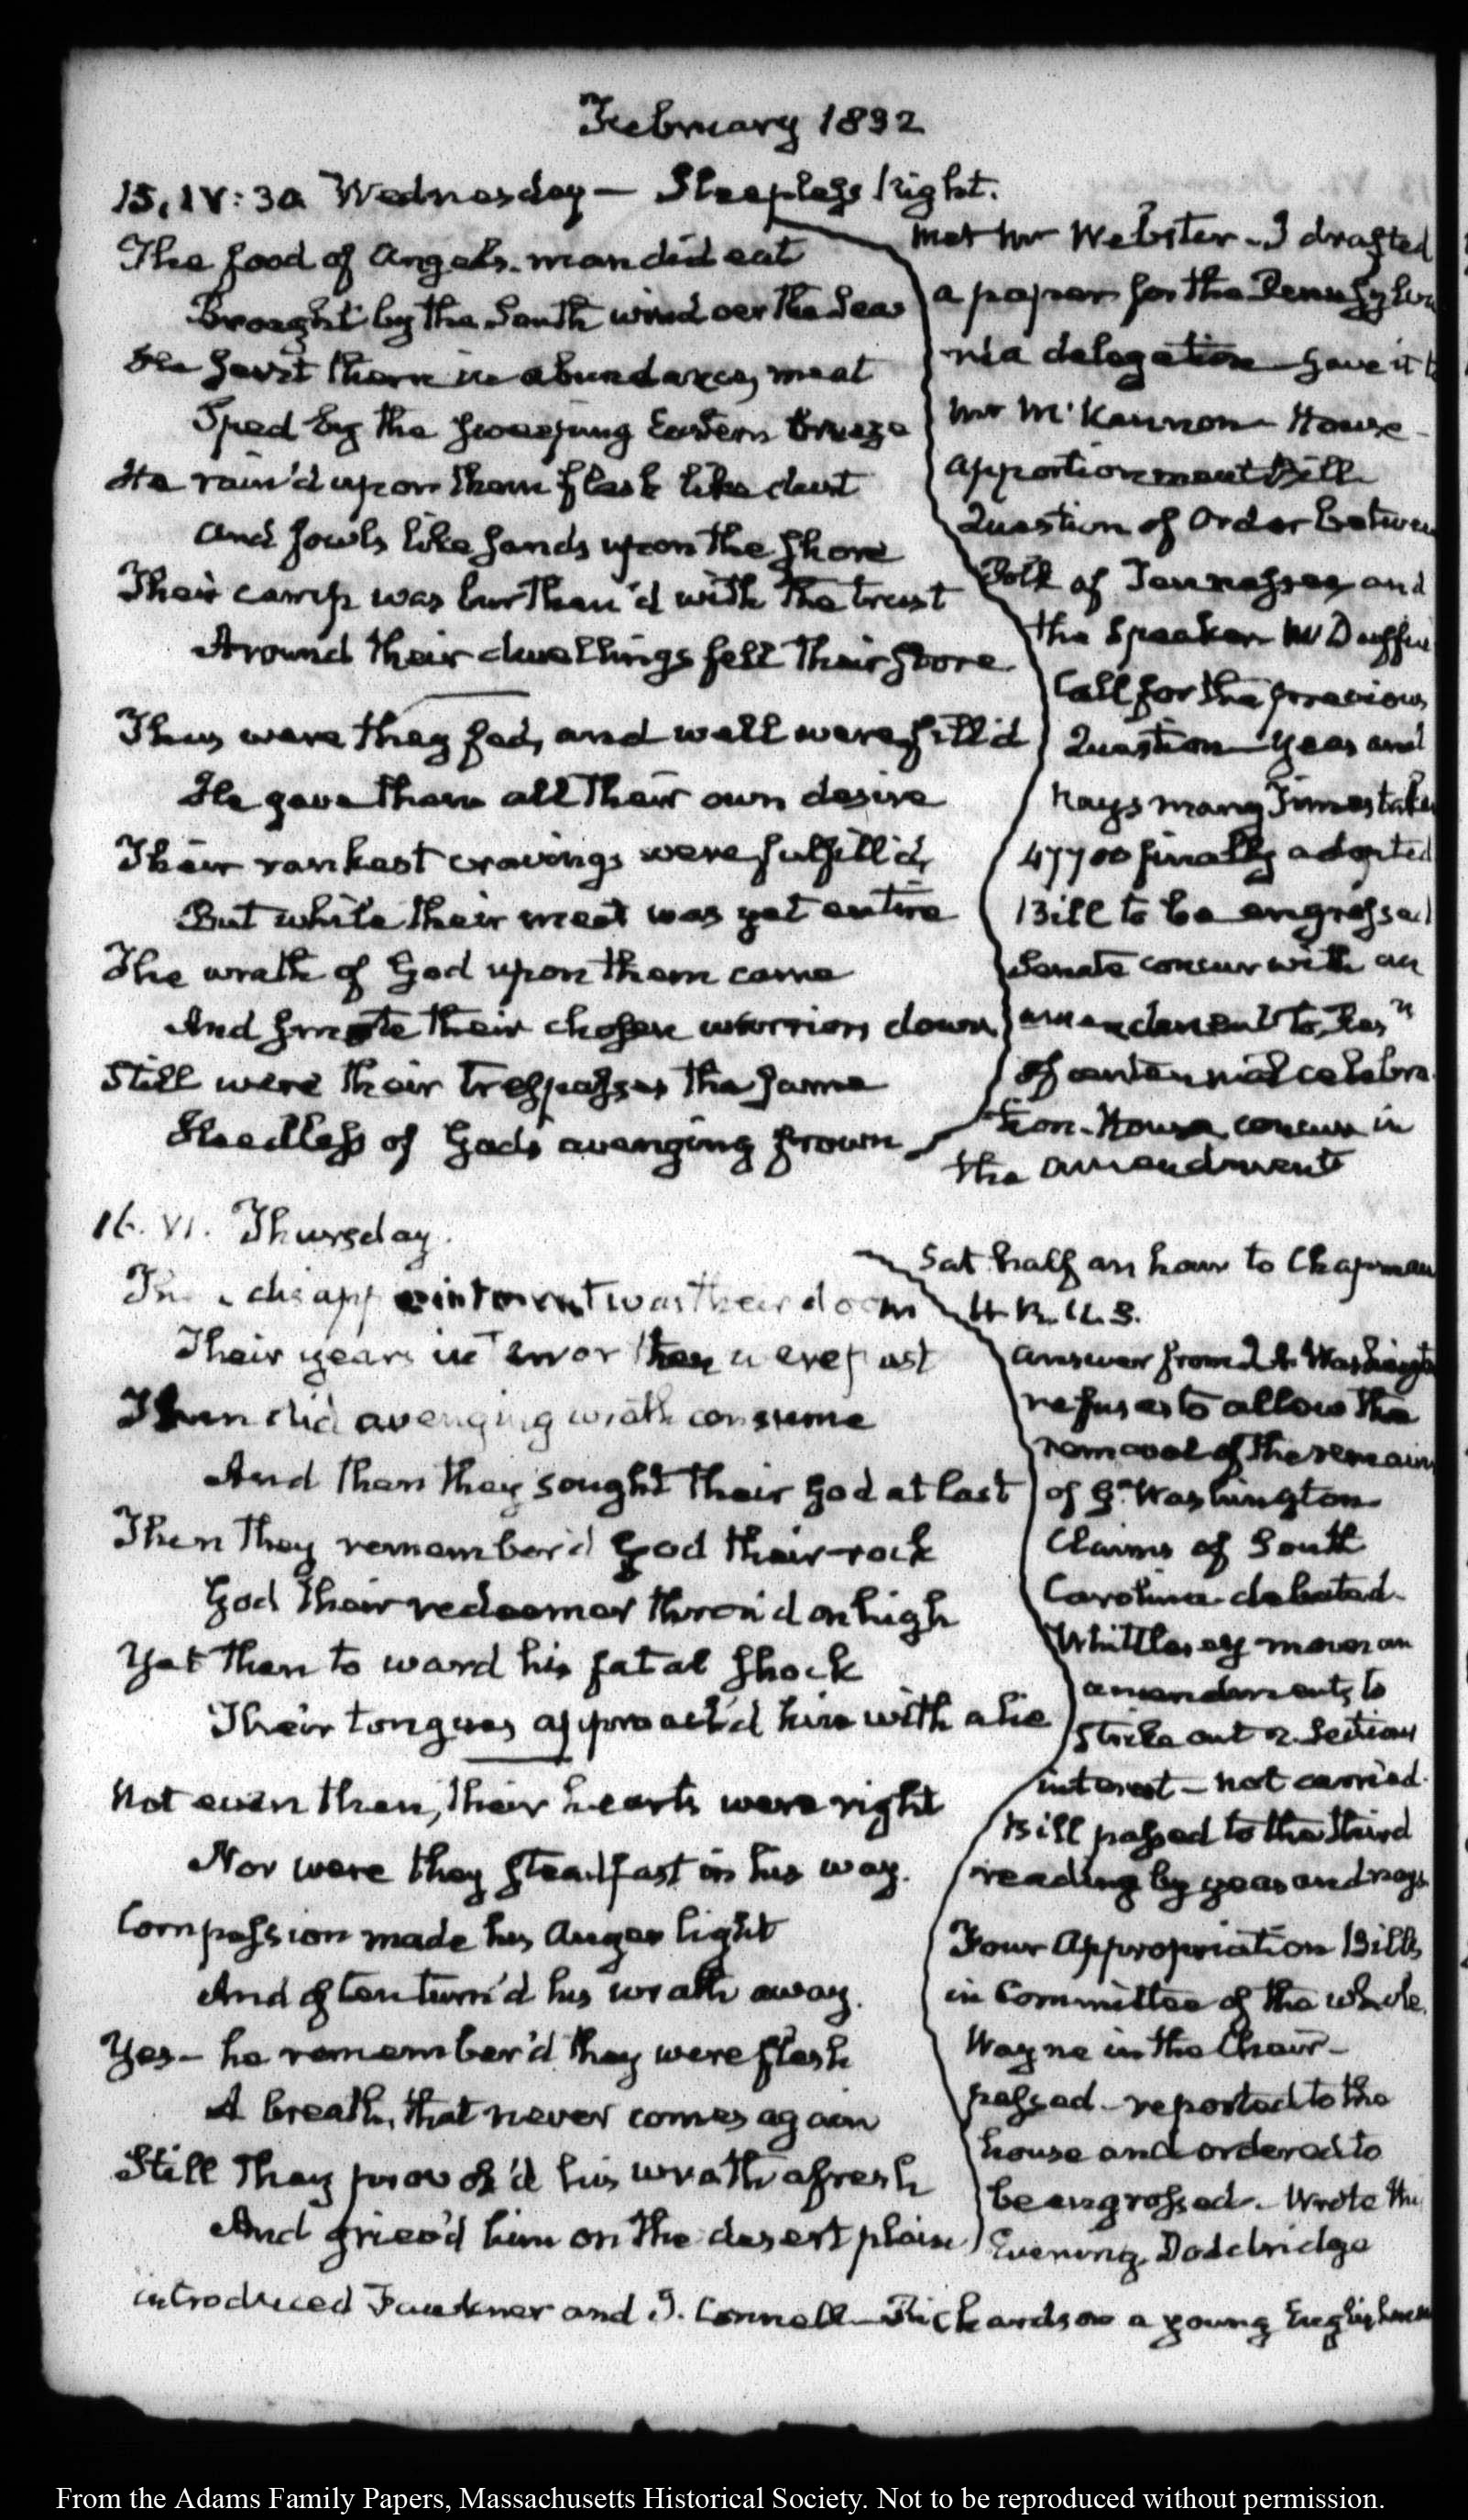 February 1832
15, IV:30 Wednesday — Sleepless Night.
The food of Angels, man did eat
Brought by the South wind oer the Seas
He gave them in abundance, meat
Sped by the sweeping Eastern breeze
He rain'd upon them flesh like dust
And fowls like sands upon the shore
Their camp was burthen'd with the trust
Around their dwellings fell their store
Thus were they fed, and well were fill'd
He gave them all their own desire
Their rankest cravings were fulfill'd,
But while their meat was yet entire
The wrath of God upon them came
And smote their chosen warriors down,
Still were their trespasses the same
Heedless of Gods avenging frown
met Mr Webster - I drafted
a paper for the Pennsylva
nia delegation - gave it to
Mr McKennon - House -
Apportionment Bill
Question of Order between
Polk of Tennessee and
the Speaker - McDuffie
Call for the previous
Question - Yeas and
Nays many Times taken
47700 finally adopted
Bill to be engrossed
Senate concur with an
amendment to Resn
of centennial celebra
tion - House concur in
the amendment
16. VI. Thursday.
disappointment was their doom
Their years in terror then were past
Then did avenging wrath consume
And then they sought their God at last
Then they remember'd God their rock
God their redeemer thron'd on high
Yet then to ward his fatal shock
Their tongues approach'd him with a lie
Not even then, their hearts were right
Nor were they steadfast in his way.
Compassion made his anger light
And often turn'd his wrath away.
Yes - he remember'd they were flesh
A breath, that never comes again
Still they provok'd his wrath afresh
And griev'd him on the desert plain
Sat half an hour to Chapman
H.R.U.S.
Answer from Washington
refuses to allow the
removal of the remains
of G. Washington
Claims of South
Carolina debated -
Whittlesey moves an
amendment, to
strike out 2. Section
interest - not carried -
Bill passed to the third
reading by yeas and nays
Four Appropriation Bills
in Committee of the whole.
Wayne in the Chair -
passed - reported to the
house and ordered to
be engrossed. - Wrote this
Evening. Doddridge
introduced Faulkner and J. Connell - Richardson a young Englishman
From the Adams Family Papers, Massachusetts Historical Society. Not to be reproduced without permission.